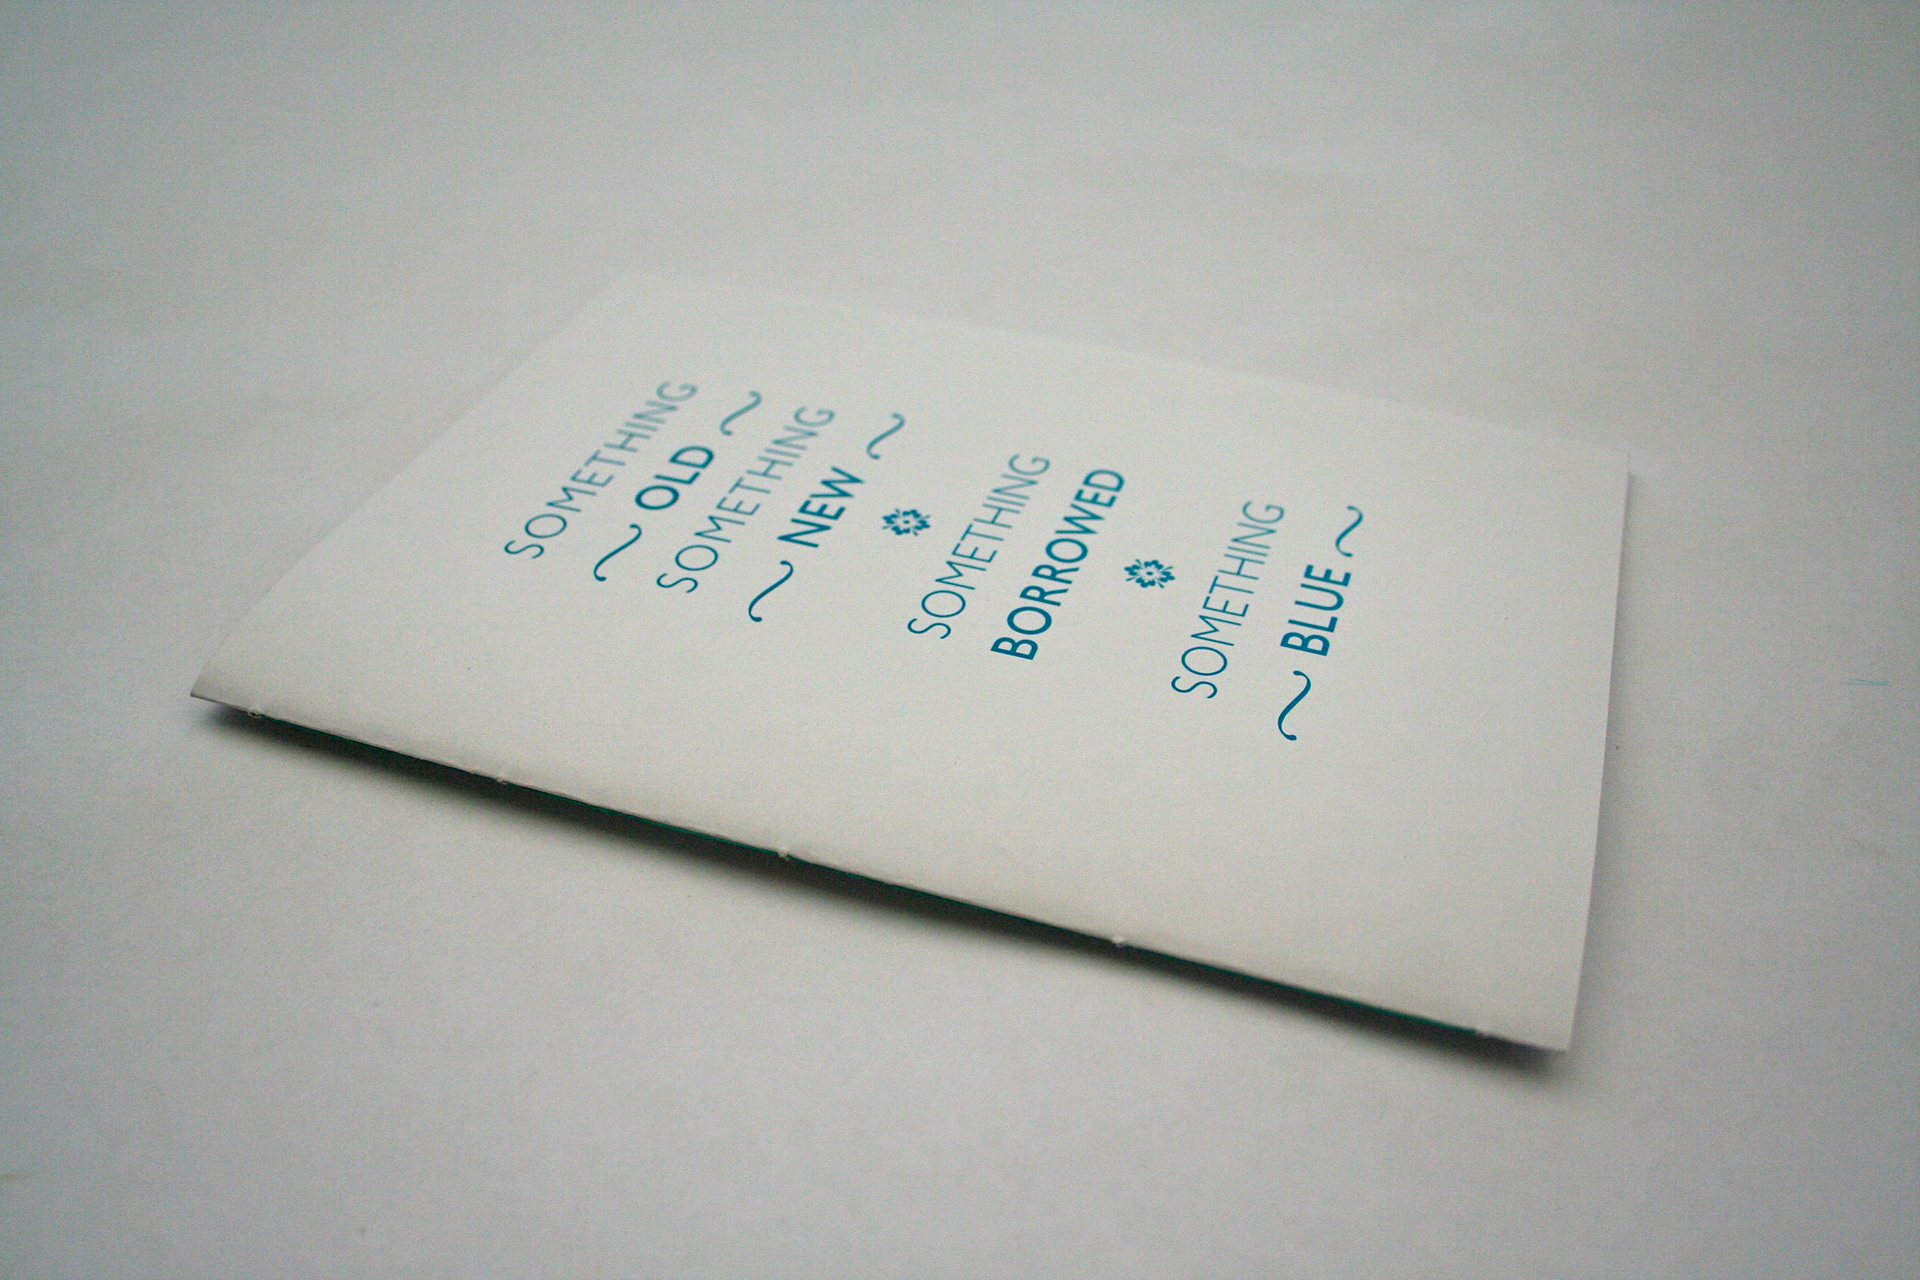 SOMETHING
~ OLD ~
SOMETHING
~ NEW ~
SOMETHING
BORROWED
SOMETHING
~ BLUE ~